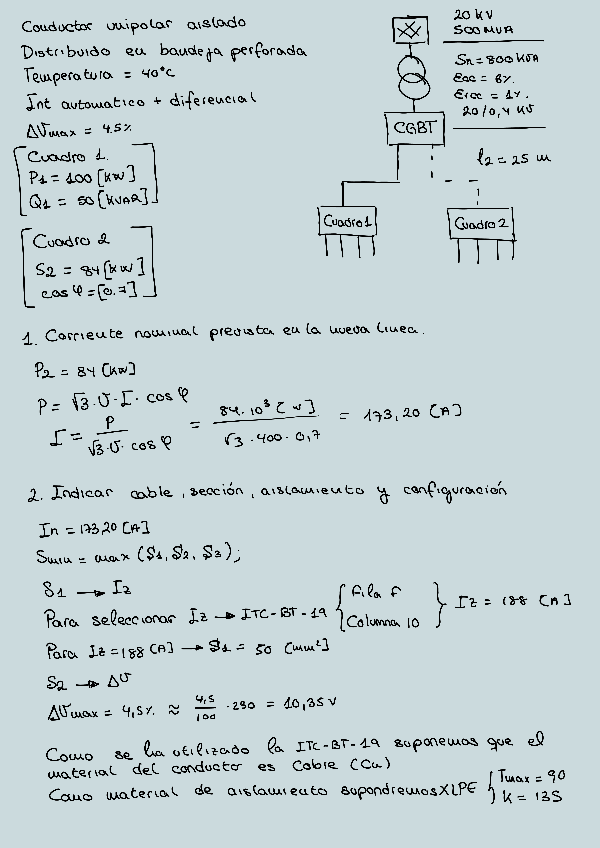 Conductor unipolar aislado
Distribuido en bandeja perforada
Temperatura = 40°C
Int automatico + diferencial
ΔUmax = 4.5%
Cuadro 1.
P1 = 100 [kW]
Q1 = 50 [KVAR]
Cuadro 2
S2 = 84 [kW]
cos φ = [0.7]
20 KV
500 MVA
Sn = 800 kVA
Ecc = 6%
Ercc = 1%
20/0,4 KV
CGBT
l2 = 25 m
Cuadro 1
Cuadro 2
1. Corriente nominal prevista en la nueva linea.
P2 = 84 [kW]
P = √3 · U · I · cos φ
I = P / (√3 · U · cos φ) = 84 · 10³ [W] / (√3 · 400 · 0,7) = 173,20 [A]
2. Indicar cable, sección, aislamiento y configuración
In = 173,20 [A]
Smin = max (S1, S2, S3);
S1 → Iz
Para seleccionar Iz → ITC-BT-19 { Fila F Columna 10 } Iz = 188 [A]
Para Iz = 188 [A] → S1 = 50 [mm²]
S2 → ΔU
ΔUmax = 4,5% ≈ 4,5/100 · 230 = 10,35 V
Como se ha utilizado la ITC-BT-19 suponemos que el
material del conductor es Cobre (Cu)
Como material de aislamiento supondremos XLPE { Tmax = 90 K = 135